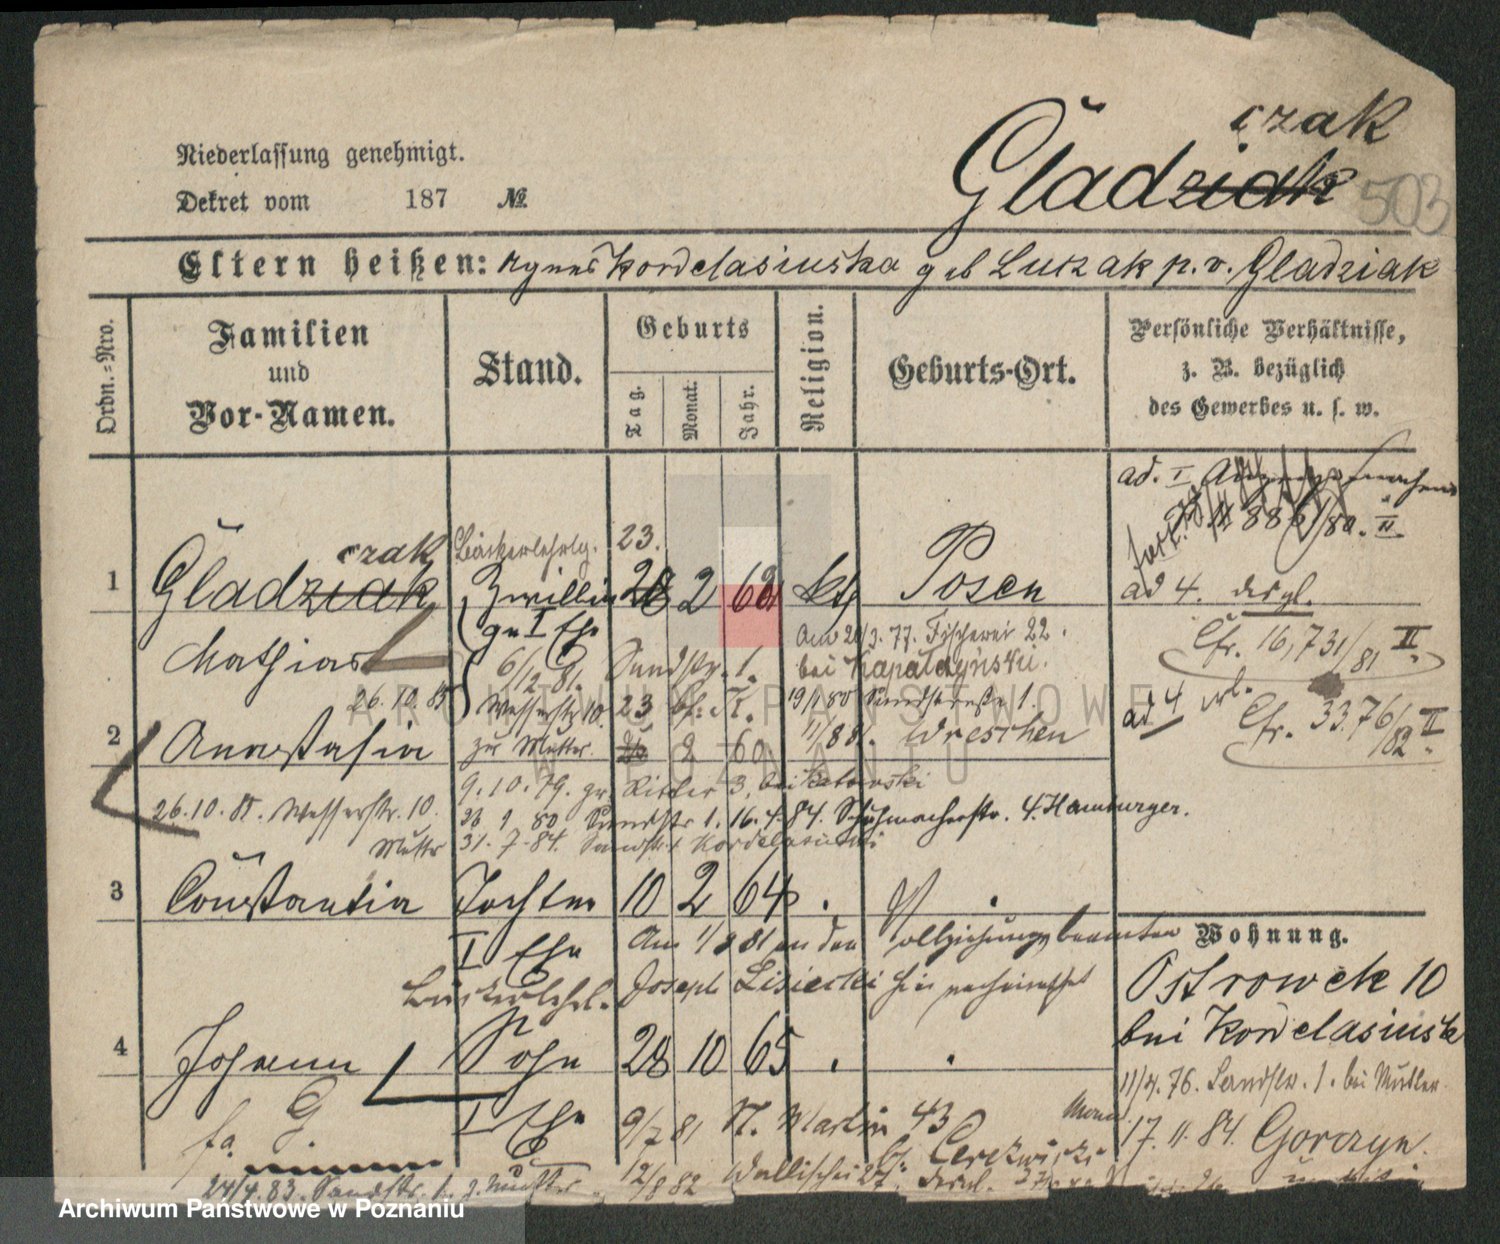 czak
Niederlassung genehmigt.
Dekret vom 187 №
Gladziak 503
Eltern heißen: Agnes Kordelasinska geb Luzak p. v. Gladziak
Ordn.=Nro.
Familien
und
Vor-Namen.
Stand.
Geburts
Tag.
Monat.
Jahr.
Religion.
Geburts-Ort.
Persönliche Verhältnisse,
z. B. bezüglich
des Gewerbes u. s. w.
ad. I
/80. II
czak Bäckerlehrlg. 23.
1 Gladziak Zwilling 2 kth Posen
ad 4. desgl.
gn I Ehe
Cfr. 16,731/81 II
Mathias 6/12 81. Sandstr. 1.
Am 20/3. 77. Fischerei 22.
bei Kapalczynski.
26.10.85 Wasserstr 10. 23 19/1 80 Sandstraße 1.
ad 4 Cfr. 3376/82 II
2 Anastasia zur Mutter. 2 60 11/8 81. Wreschen
9.10.79. gr. Ritter 3, bei
26.10.85. Wasserstr. 10. 80 Sandstr 1. 16.4.84. Schuhmacherstr. 4. Hamburger.
Mutter 31.7.84. Sandstr 1 Kordelasinski
3 Constantia Tochter 10 2 64
I Ehe Am 1/8 81 an den Vollziehungsbeamten
Wohnung.
Bäckerlehrl. Joseph Lisiecki hier verheirathet
Ostrowek 10
bei Kordelasinsk
4 Johann Sohn 28 10 65
11/4. 76. Sandstr. 1. bei Mutter.
I Ehe 9/7 81 St. Martin 43
17. 11. 84. Gorczyn.
fa. G.
24/4. 83. Sandstr. 1. z. Mutter. 12/8 82 Wallischei 27.
ARCHIWUM PAŃSTWOWE
W POZNANIU
Archiwum Państwowe w Poznaniu